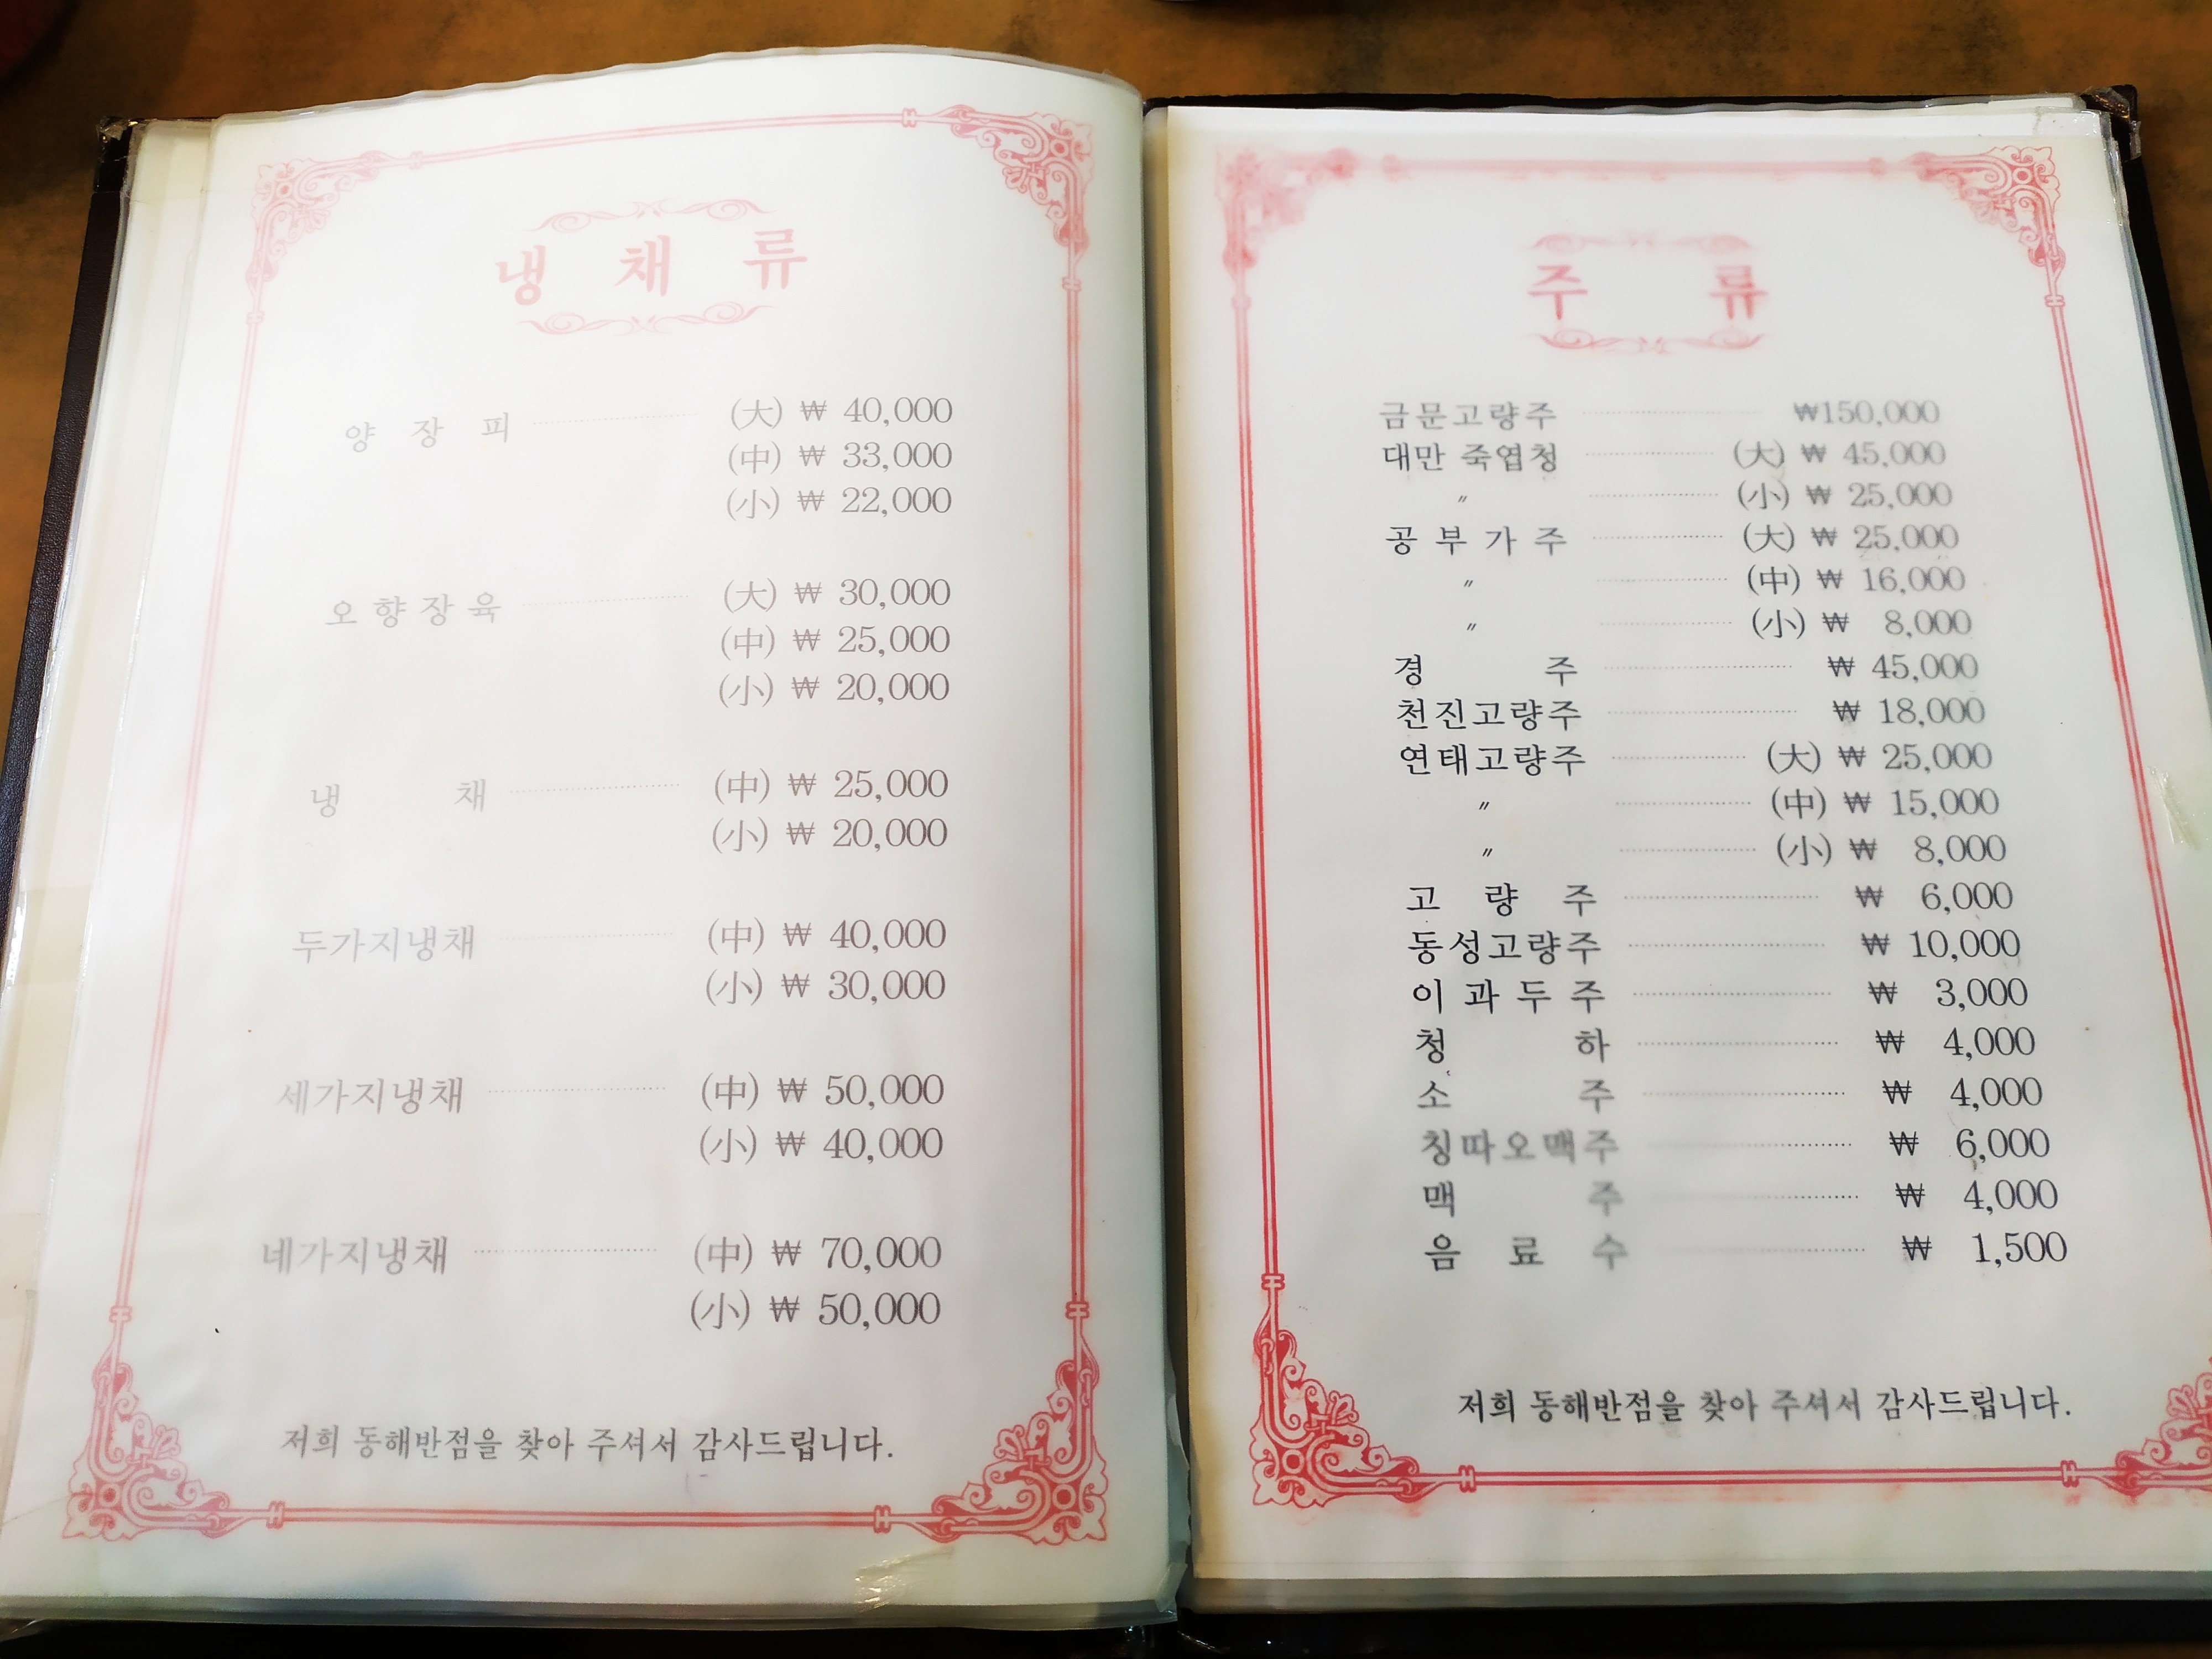 냉 채 류
양 장 피 (大) ₩ 40,000
(中) ₩ 33,000
(小) ₩ 22,000
오향장육 (大) ₩ 30,000
(中) ₩ 25,000
(小) ₩ 20,000
냉 채 (中) ₩ 25,000
(小) ₩ 20,000
두가지냉채 (中) ₩ 40,000
(小) ₩ 30,000
세가지냉채 (中) ₩ 50,000
(小) ₩ 40,000
네가지냉채 (中) ₩ 70,000
(小) ₩ 50,000
저희 동해반점을 찾아 주셔서 감사드립니다.
주 류
금문고량주 ₩150,000
대만 죽엽청 (大) ₩ 45,000
〃 (小) ₩ 25,000
공부가주 (大) ₩ 25,000
〃 (中) ₩ 16,000
〃 (小) ₩ 8,000
경 주 ₩ 45,000
천진고량주 ₩ 18,000
연태고량주 (大) ₩ 25,000
〃 (中) ₩ 15,000
〃 (小) ₩ 8,000
고 량 주 ₩ 6,000
동성고량주 ₩ 10,000
이과두주 ₩ 3,000
청 하 ₩ 4,000
소 주 ₩ 4,000
칭따오맥주 ₩ 6,000
맥 주 ₩ 4,000
음 료 수 ₩ 1,500
저희 동해반점을 찾아 주셔서 감사드립니다.